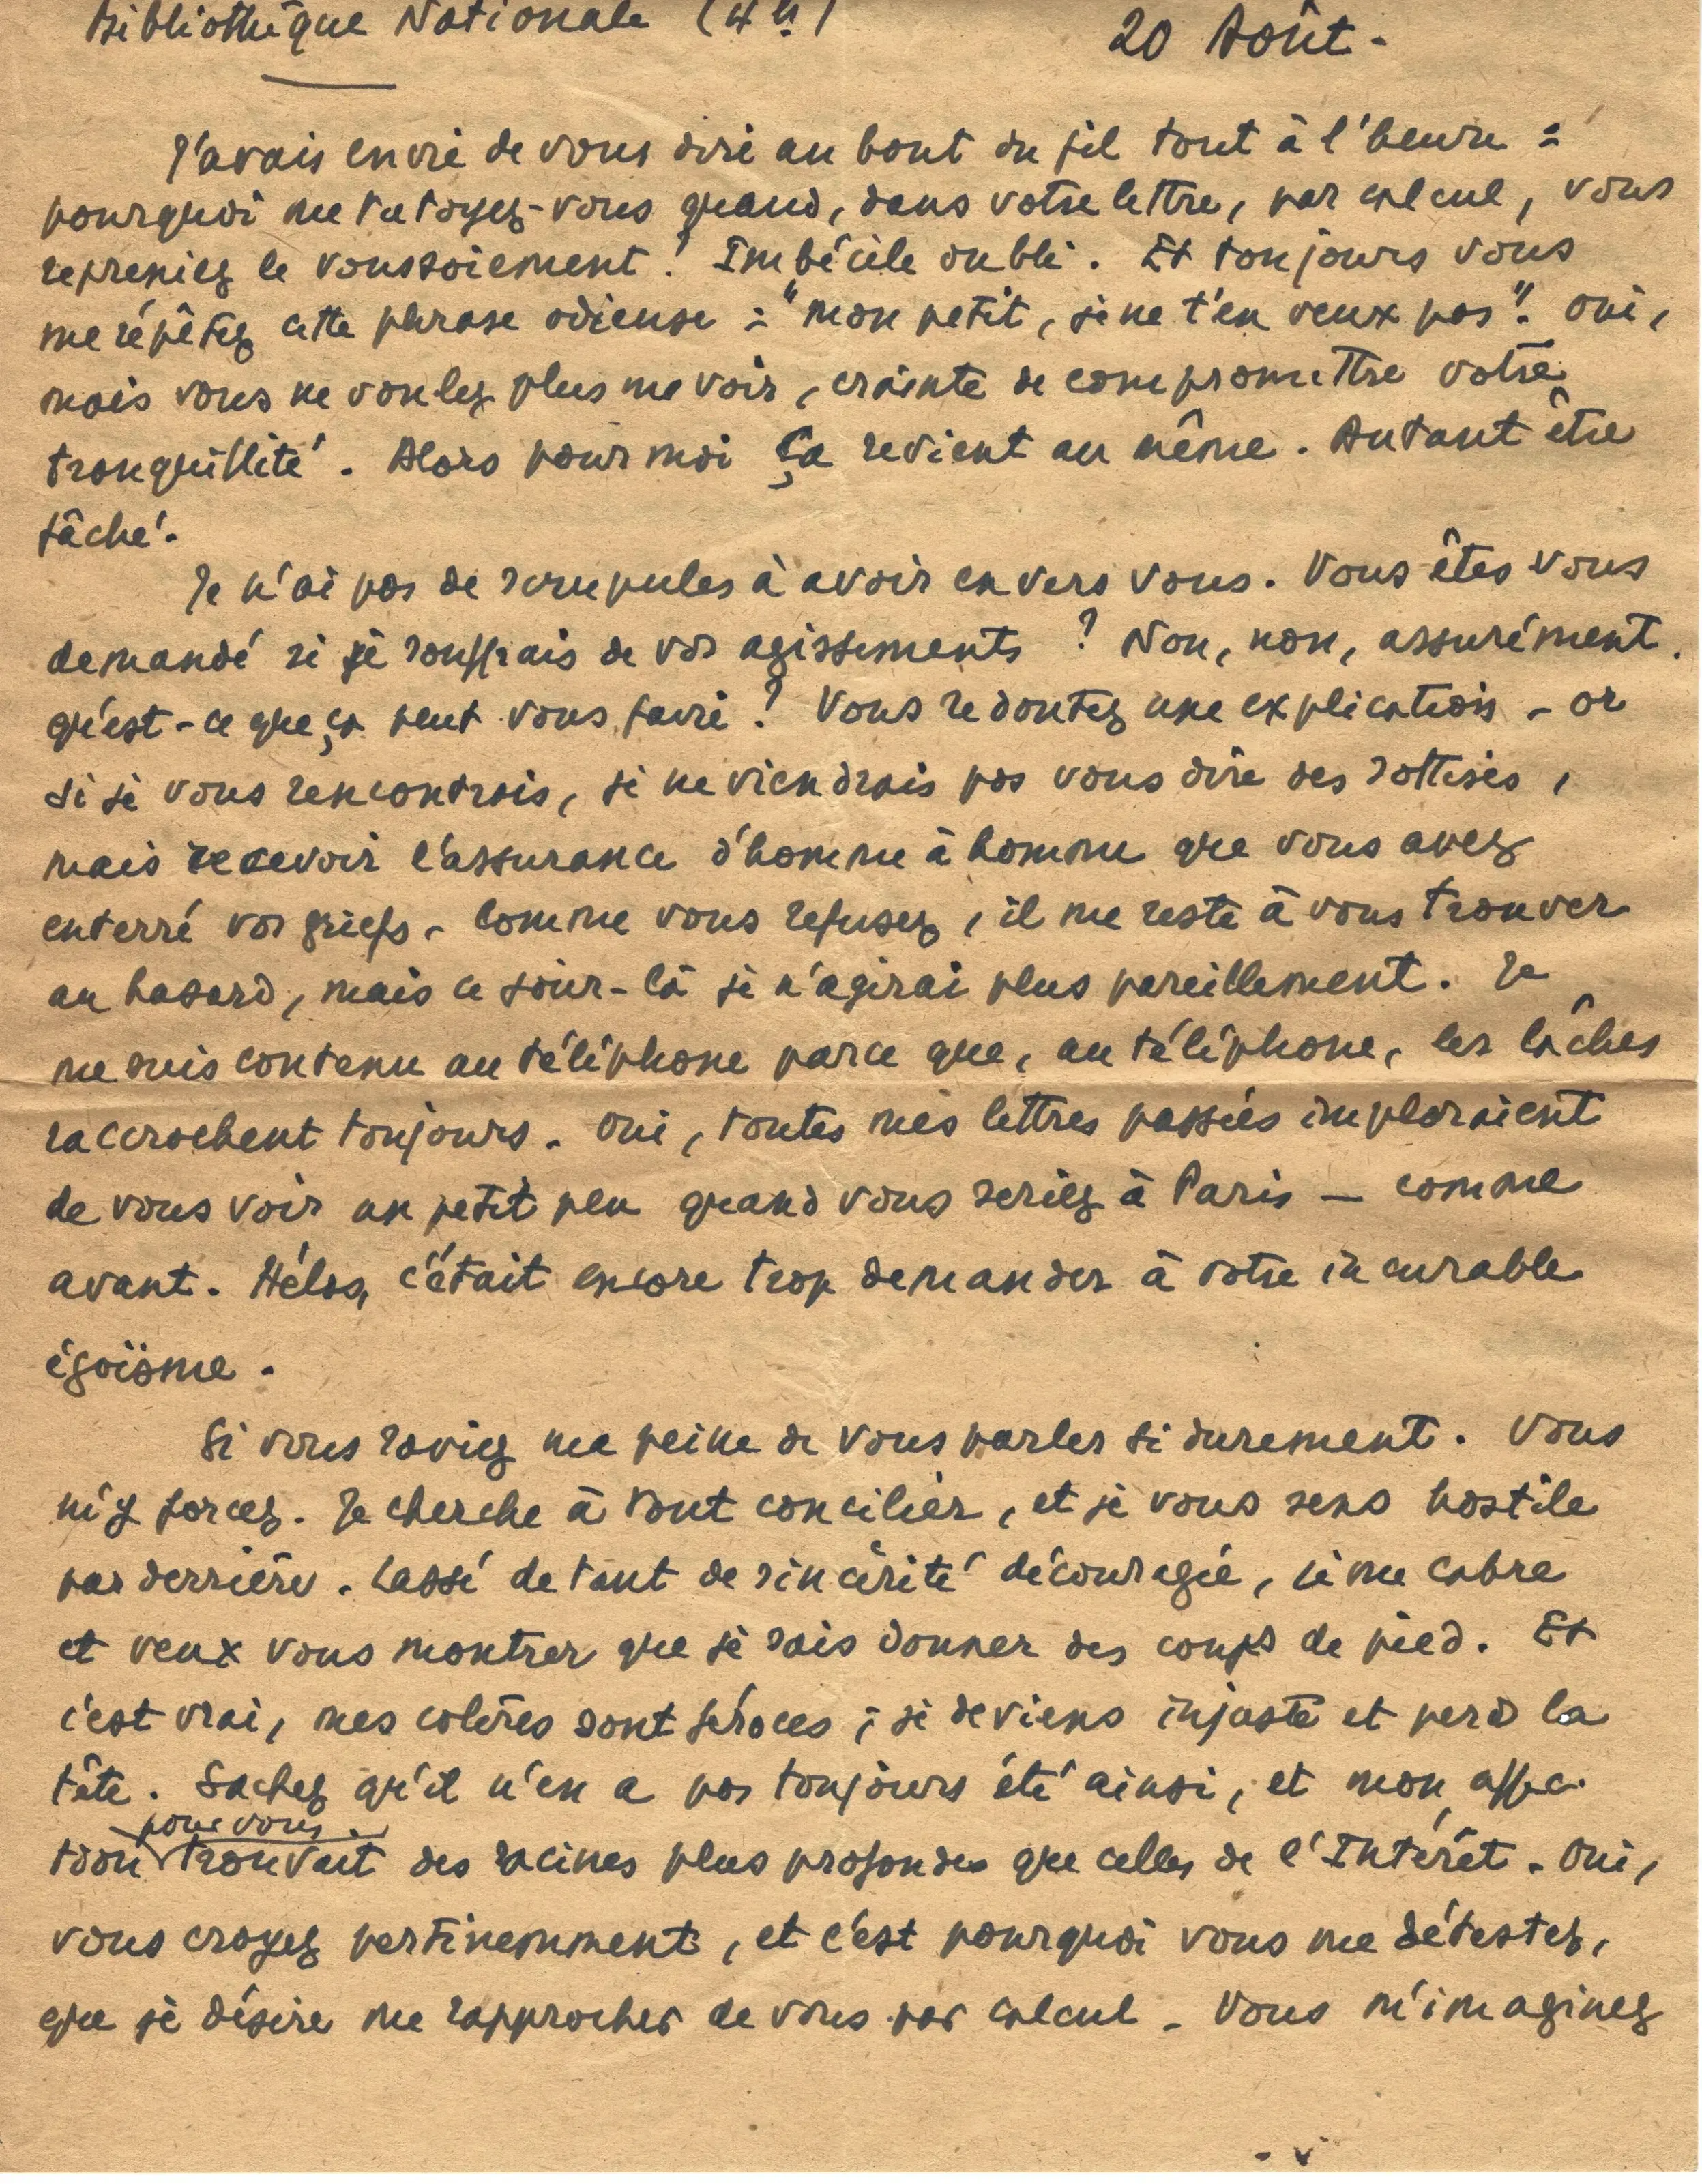 Bibliothèque Nationale (4h)
20 Août -
J'avais envie de vous dire au bout du fil tout à l'heure :
pourquoi me tutoyez-vous quand, dans votre lettre, par calcul, vous
repreniez le voussoiement ? Imbécile oubli. Et toujours vous
me répétez cette phrase odieuse : "mon petit, je ne t'en veux pas". Oui,
mais vous ne voulez plus me voir, crainte de compromettre votre
tranquillité. Alors pour moi ça revient au même. Autant être
fâché.
Je n'ai pas de scrupules à avoir envers vous. Vous êtes vous
demandé si je souffrais de vos agissements ? Non, non, assurément.
qu'est-ce que ça peut vous faire ? Vous redoutez une explication - or
si je vous rencontrais, je ne viendrais pas vous dire des sottises,
mais recevoir l'assurance d'homme à homme que vous avez
enterré vos griefs. Comme vous refusez, il me reste à vous trouver
au hasard, mais ce jour-là je n'agirai plus pareillement. Je
me suis contenu au téléphone parce que, au téléphone, les lâches
raccrochent toujours. Oui, toutes mes lettres passées imploraient
de vous voir un petit peu quand vous seriez à Paris — comme
avant. Hélas, c'était encore trop demander à votre incurable
égoïsme.
Si vous saviez ma peine de vous parler si durement. Vous
m'y forcez. Je cherche à tout concilier, et je vous sens hostile
par derrière. Lassé de tant de sincérité découragée, je me cabre
et veux vous montrer que je sais donner des coups de pied. Et
c'est vrai, mes colères sont féroces ; je deviens injuste et perd la
tête. Sachez qu'il n'en a pas toujours été ainsi, et mon affec-
pour vous
tion trouvait des racines plus profondes que celles de l'Intérêt. Oui,
vous croyez pertinemment, et c'est pourquoi vous me détestez,
que je désire me rapprocher de vous par calcul. Vous m'imaginez